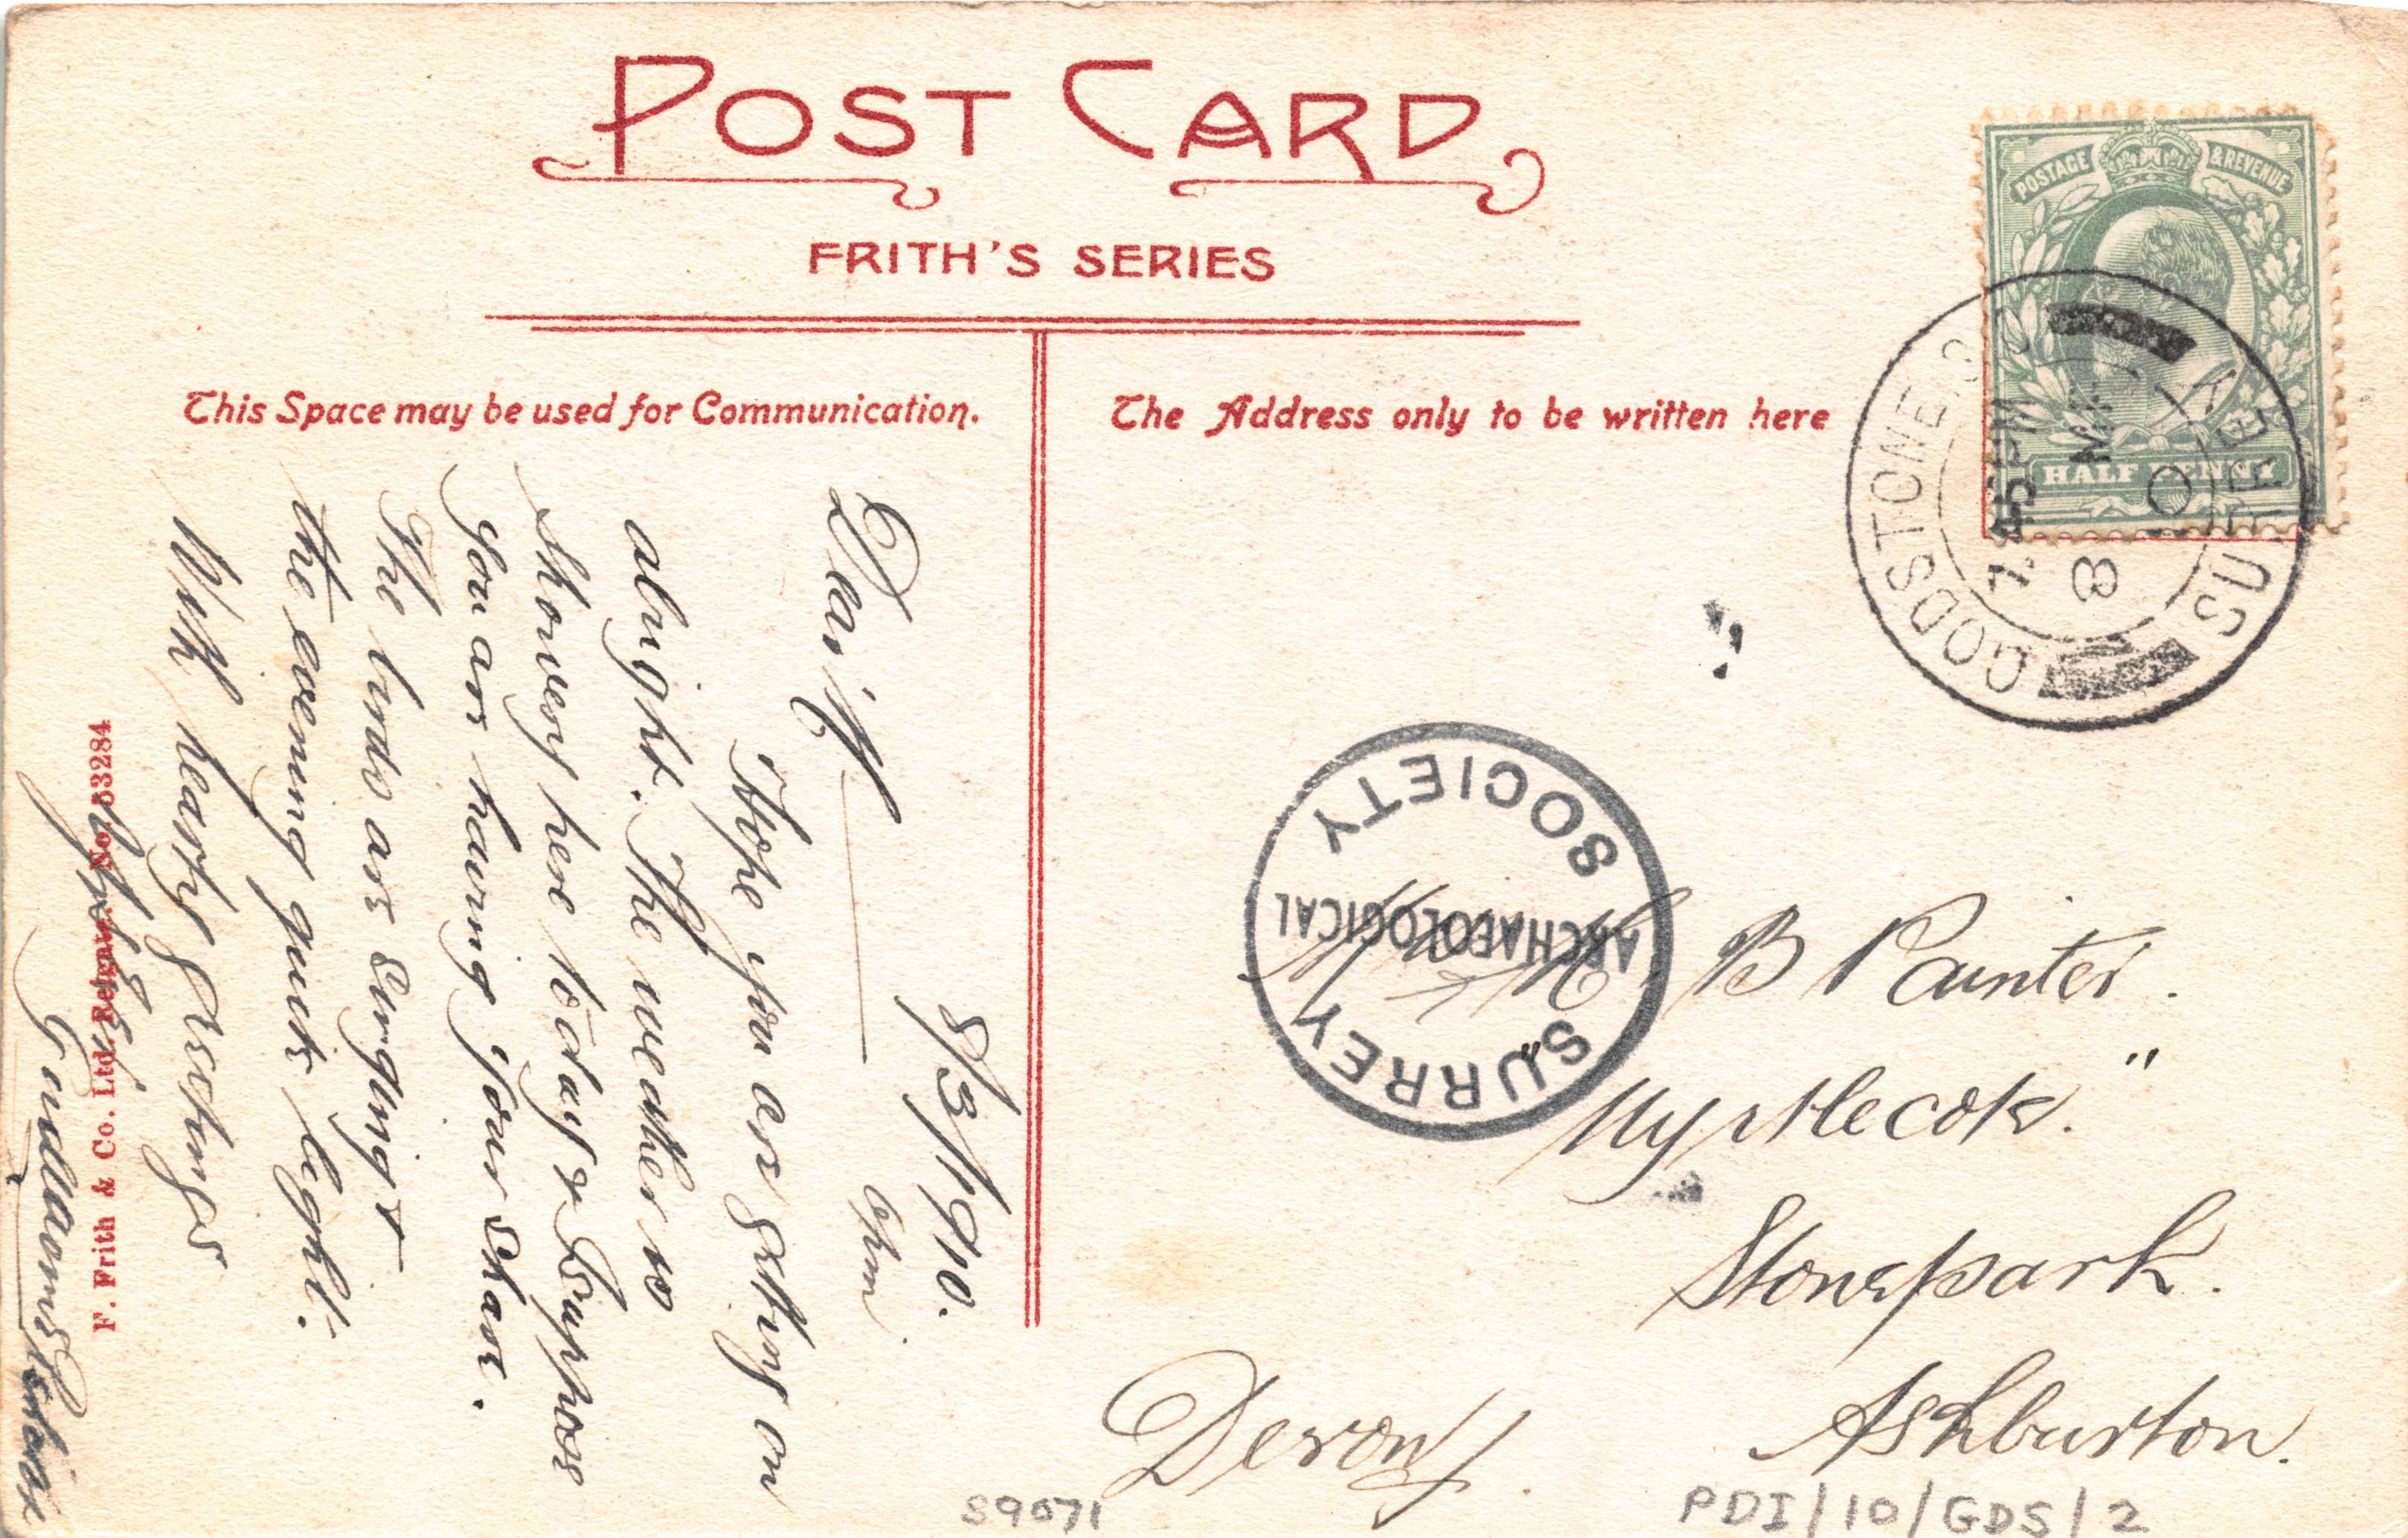 POST CARD
FRITH'S SERIES
This Space may be used for Communication.
The Address only to be written here
POSTAGE & REVENUE
HALF PENNY
GODSTONE
SURREY
7.45 PM
8 MR
10
8/3/1910.
Dear
Hope you are getting on
alright. The weather is
showery here today & suppose
you are having your share.
The birds are singing &
the evening quite light.
With hearty Greetings
F. Frith & Co. Ltd. Reigate. No. 53284
SURREY
ARCHAEOLOGICAL
SOCIETY
B Painter.
"Myrtlecot."
Stonepark.
Ashburton.
Devon.
S9071
PDI/10/GDS/2